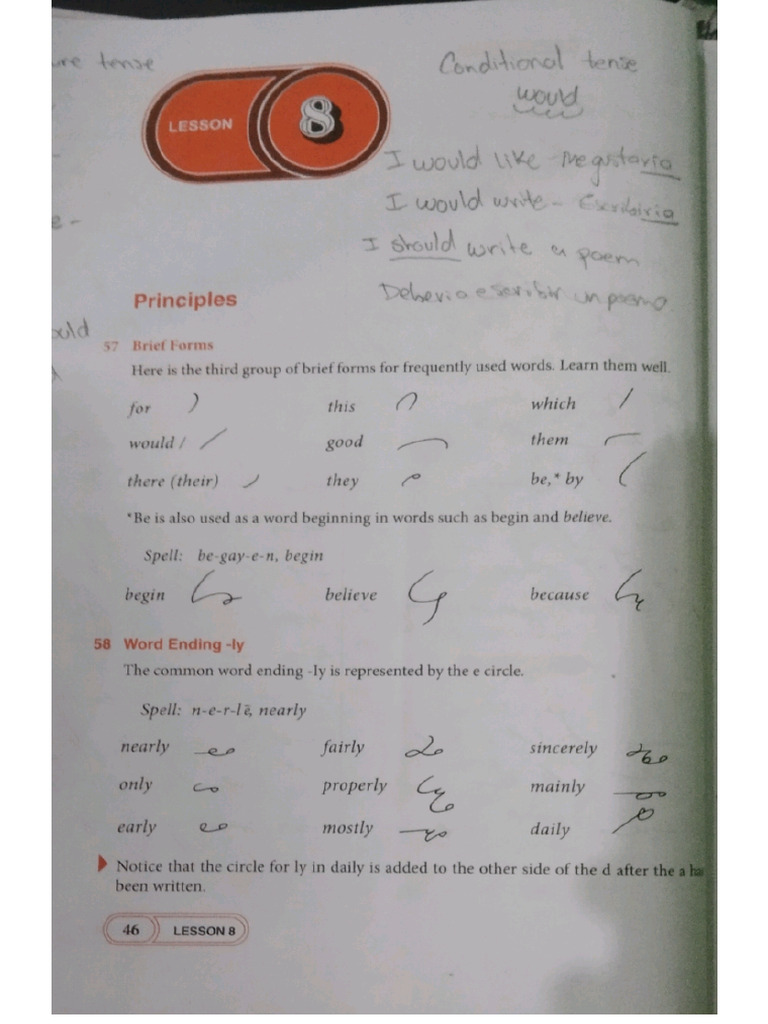 ure tense
Conditional tense
would
LESSON 8
I would like - Me gustaria
I would write - Escribiria
e -
I should write a poem
Deberia escribir un poema.
ould
Principles
57 Brief Forms
Here is the third group of brief forms for frequently used words. Learn them well.
for this which
would / good them
there (their) they be,* by
*Be is also used as a word beginning in words such as begin and believe.
Spell: be-gay-e-n, begin
begin believe because
58 Word Ending -ly
The common word ending -ly is represented by the e circle.
Spell: n-e-r-lē, nearly
nearly fairly sincerely
only properly mainly
early mostly daily
Notice that the circle for ly in daily is added to the other side of the d after the a has
been written.
46 LESSON 8